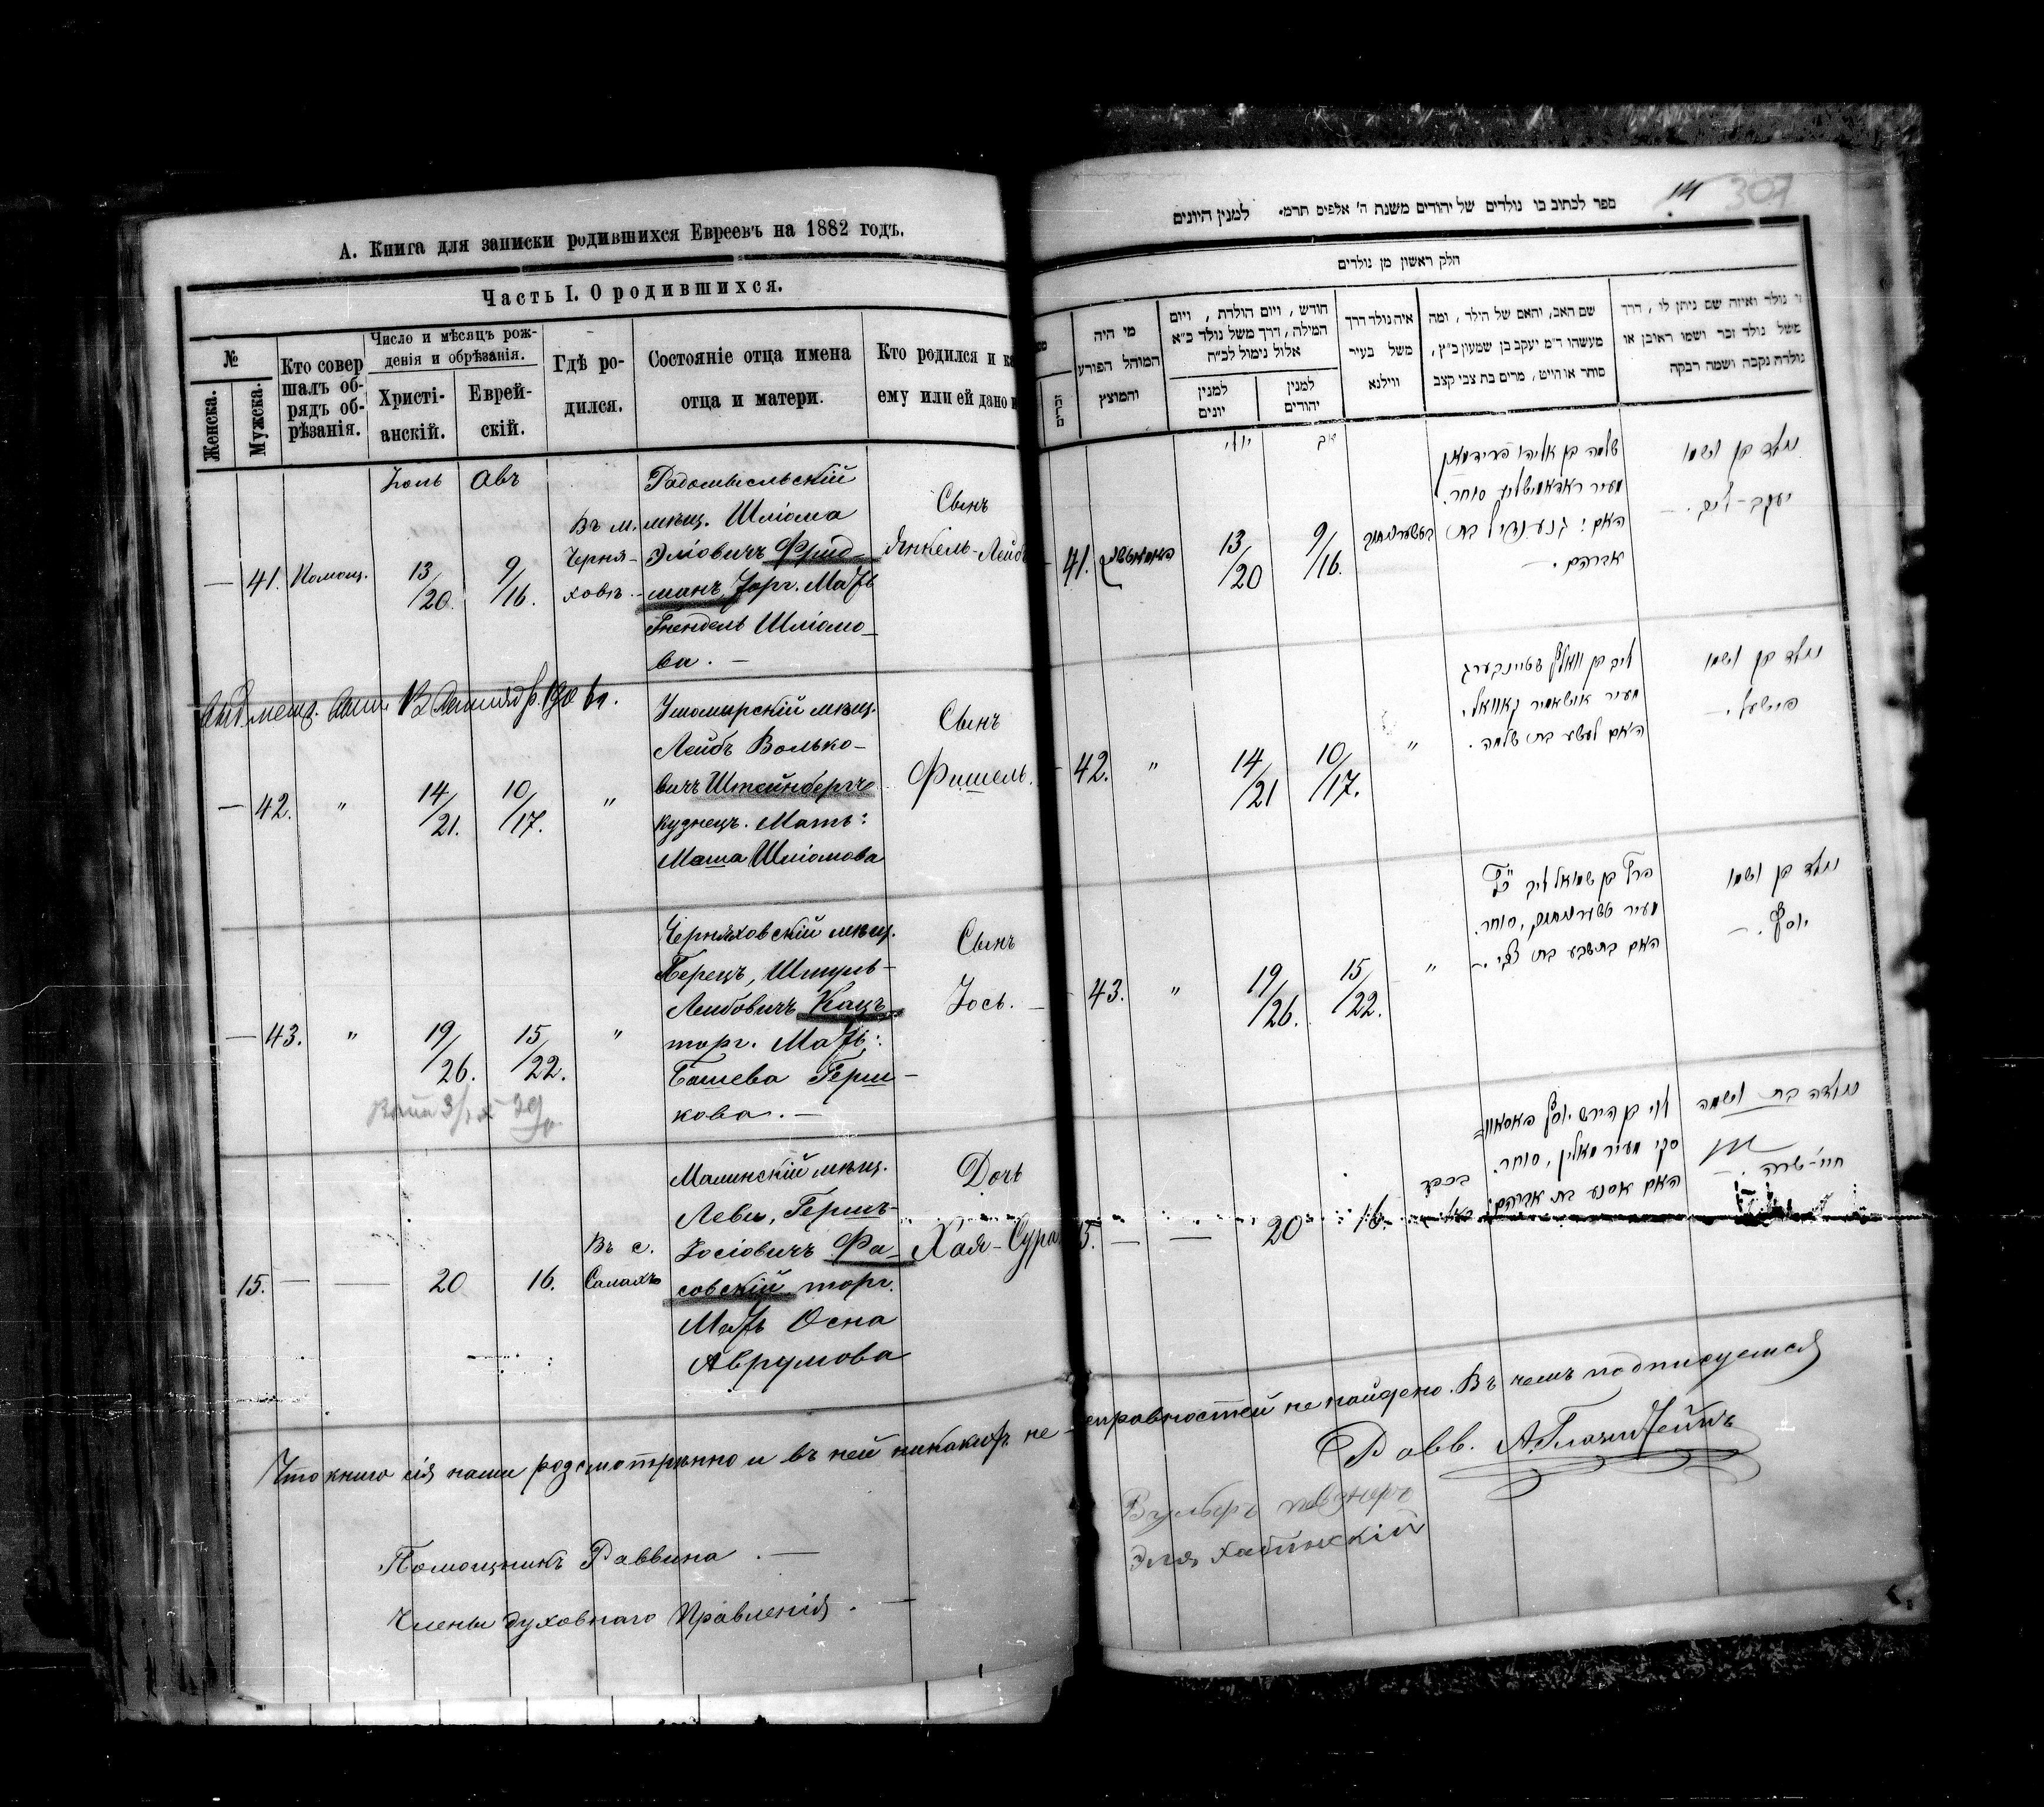 А. Книга для записки родившихся Евреевъ на 1882 годъ.
Часть I. О родившихся.
№
Женска.
Мужска.
Кто совер
шалъ об-
рядъ об-
рѣзанія.
Число и мѣсяцъ рож-
денія и обрѣзанія.
Христі-
анскій.
Еврей-
скій.
Гдѣ ро-
дился.
Состояніе отца имена
отца и матери.
Кто родился и ка
ему или ей дано и
Іюль Авъ
— 41. Помощ. 13/20. 9/16.
Въ м.
Черня-
ховѣ.
Радомысльскій
мѣщ. Шліома
Эліовичъ Фрид-
манъ, торг. Мать
Гнендель Шліомо-
ва. —
Сынъ
Янкель-Лейбъ
— 42. " 14/21. 10/17. "
Ушомирскій мѣщ.
Лейбъ Волько-
вичъ Штейнбергъ
кузнецъ. Мать:
Маша Шліомова
Сынъ
Фишель.
— 43. " 19/26. 15/22. "
Черняховскій мѣщ.
Перецъ, Шмуль-
Лейбовичъ Кацъ
торг. Мать:
Башева Герш-
кова. —
Сынъ
Іось. —
15. — — 20 16.
Въ с.
Салахъ
Малинскій мѣщ.
Левы, Гершъ-
Іосіовичъ Фа-
совскій торг.
Мать Осна
Аврумова
Дочь
Хая-Сура
Что книга сія нами разсмотрѣнно и въ ней никакихъ не-
Помощникъ Раввина. —
Члены духовнаго Правленія. —
307
ספר לכתוב בו נולדים של יהודים משנת ה' אלפים תרמ' למנין היונים
חלק ראשון מן נולדים
מי היה
המוהל הפורע
והמוצץ
חודש, ויום הולדת, ויום
המילה, דרך משל נולד כ"א
אלול נימול לכ"ח
למנין
יונים
למנין
יהודים
איה נולד דרך
משל בעיר
ווילנא
שם האב, והאם של הילד, ומה
מעשהו ד"מ יעקב בן שמעון כ"ץ,
סוחר או הייט, מרים בת צבי קצב
מי נולד ואיזה שם ניתן לו, דרך
משל נולד זכר ושמו ראובן או
נולדת נקבה ושמה רבקה
יולי אב
41. 13/20 9/16.
שלמה בן אליהו פרידמאן
מעיר ראדאמישליע סוחר.
האם: גנענדיל בת
אברהם. —
נולד בן ושמו
יעקב-ליב. —
42. " 14/21 10/17. "
ליב בן וואלף שטיינבערג
מעיר אושאמיר קאוואל.
האם מעשע בת שלמה.
נולד בן ושמו
פישעל. —
43. " 19/26. 15/22. "
פרץ בן שמואל ליב כ"ץ
מעיר טשערניחוב, סוחר.
האם בתשבע בת צבי. —
נולד בן ושמו
יוסף. —
15. — — 20 16.
בכפר
לוי בן הירש יוסף פאסאוו=
סקי מעיר מאלין, סוחר.
האם אסנע בת אברהם:
נולדה בת ושמה
חיי'-שרה. —
исправностей не найдено. Въ чемъ подписуемся
Равв.
Эля Хабинскій